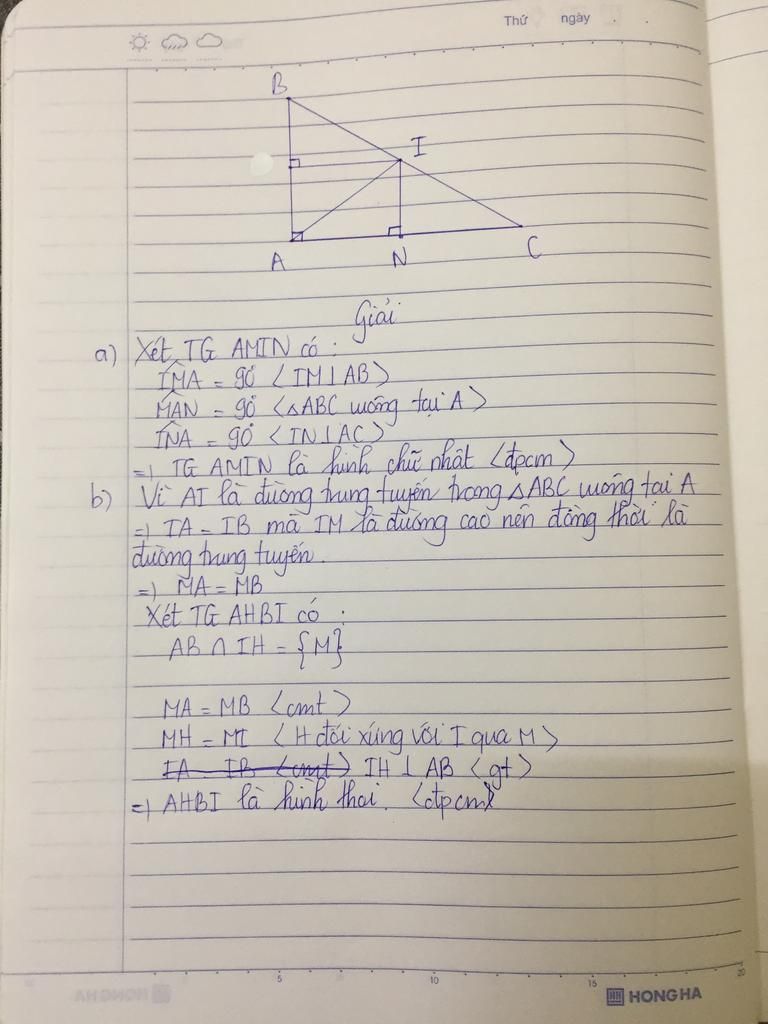 Thứ ngày . .
B
I
A N C
Giải
a) Xét TG AMIN có :
IMA = 90° <IM⊥AB>
MAN = 90° <△ABC vuông tại A>
INA = 90° <IN⊥AC>
=) TG AMIN là hình chữ nhât <đpcm>
b) Vì AI là đường trung tuyến trong △ABC vuông tại A
=) IA = IB mà IM là đường cao nên đồng thời là
đường trung tuyến.
=) MA = MB
Xét TG AHBI có :
AB ∩ IH = {M}
MA = MB <cmt>
MH = MI <H đối xứng với I qua M>
IA = IB <cmt> IH ⊥ AB <gt>
=) AHBI là hình thoi. <đpcm>
5 10 15 20
HONG HA